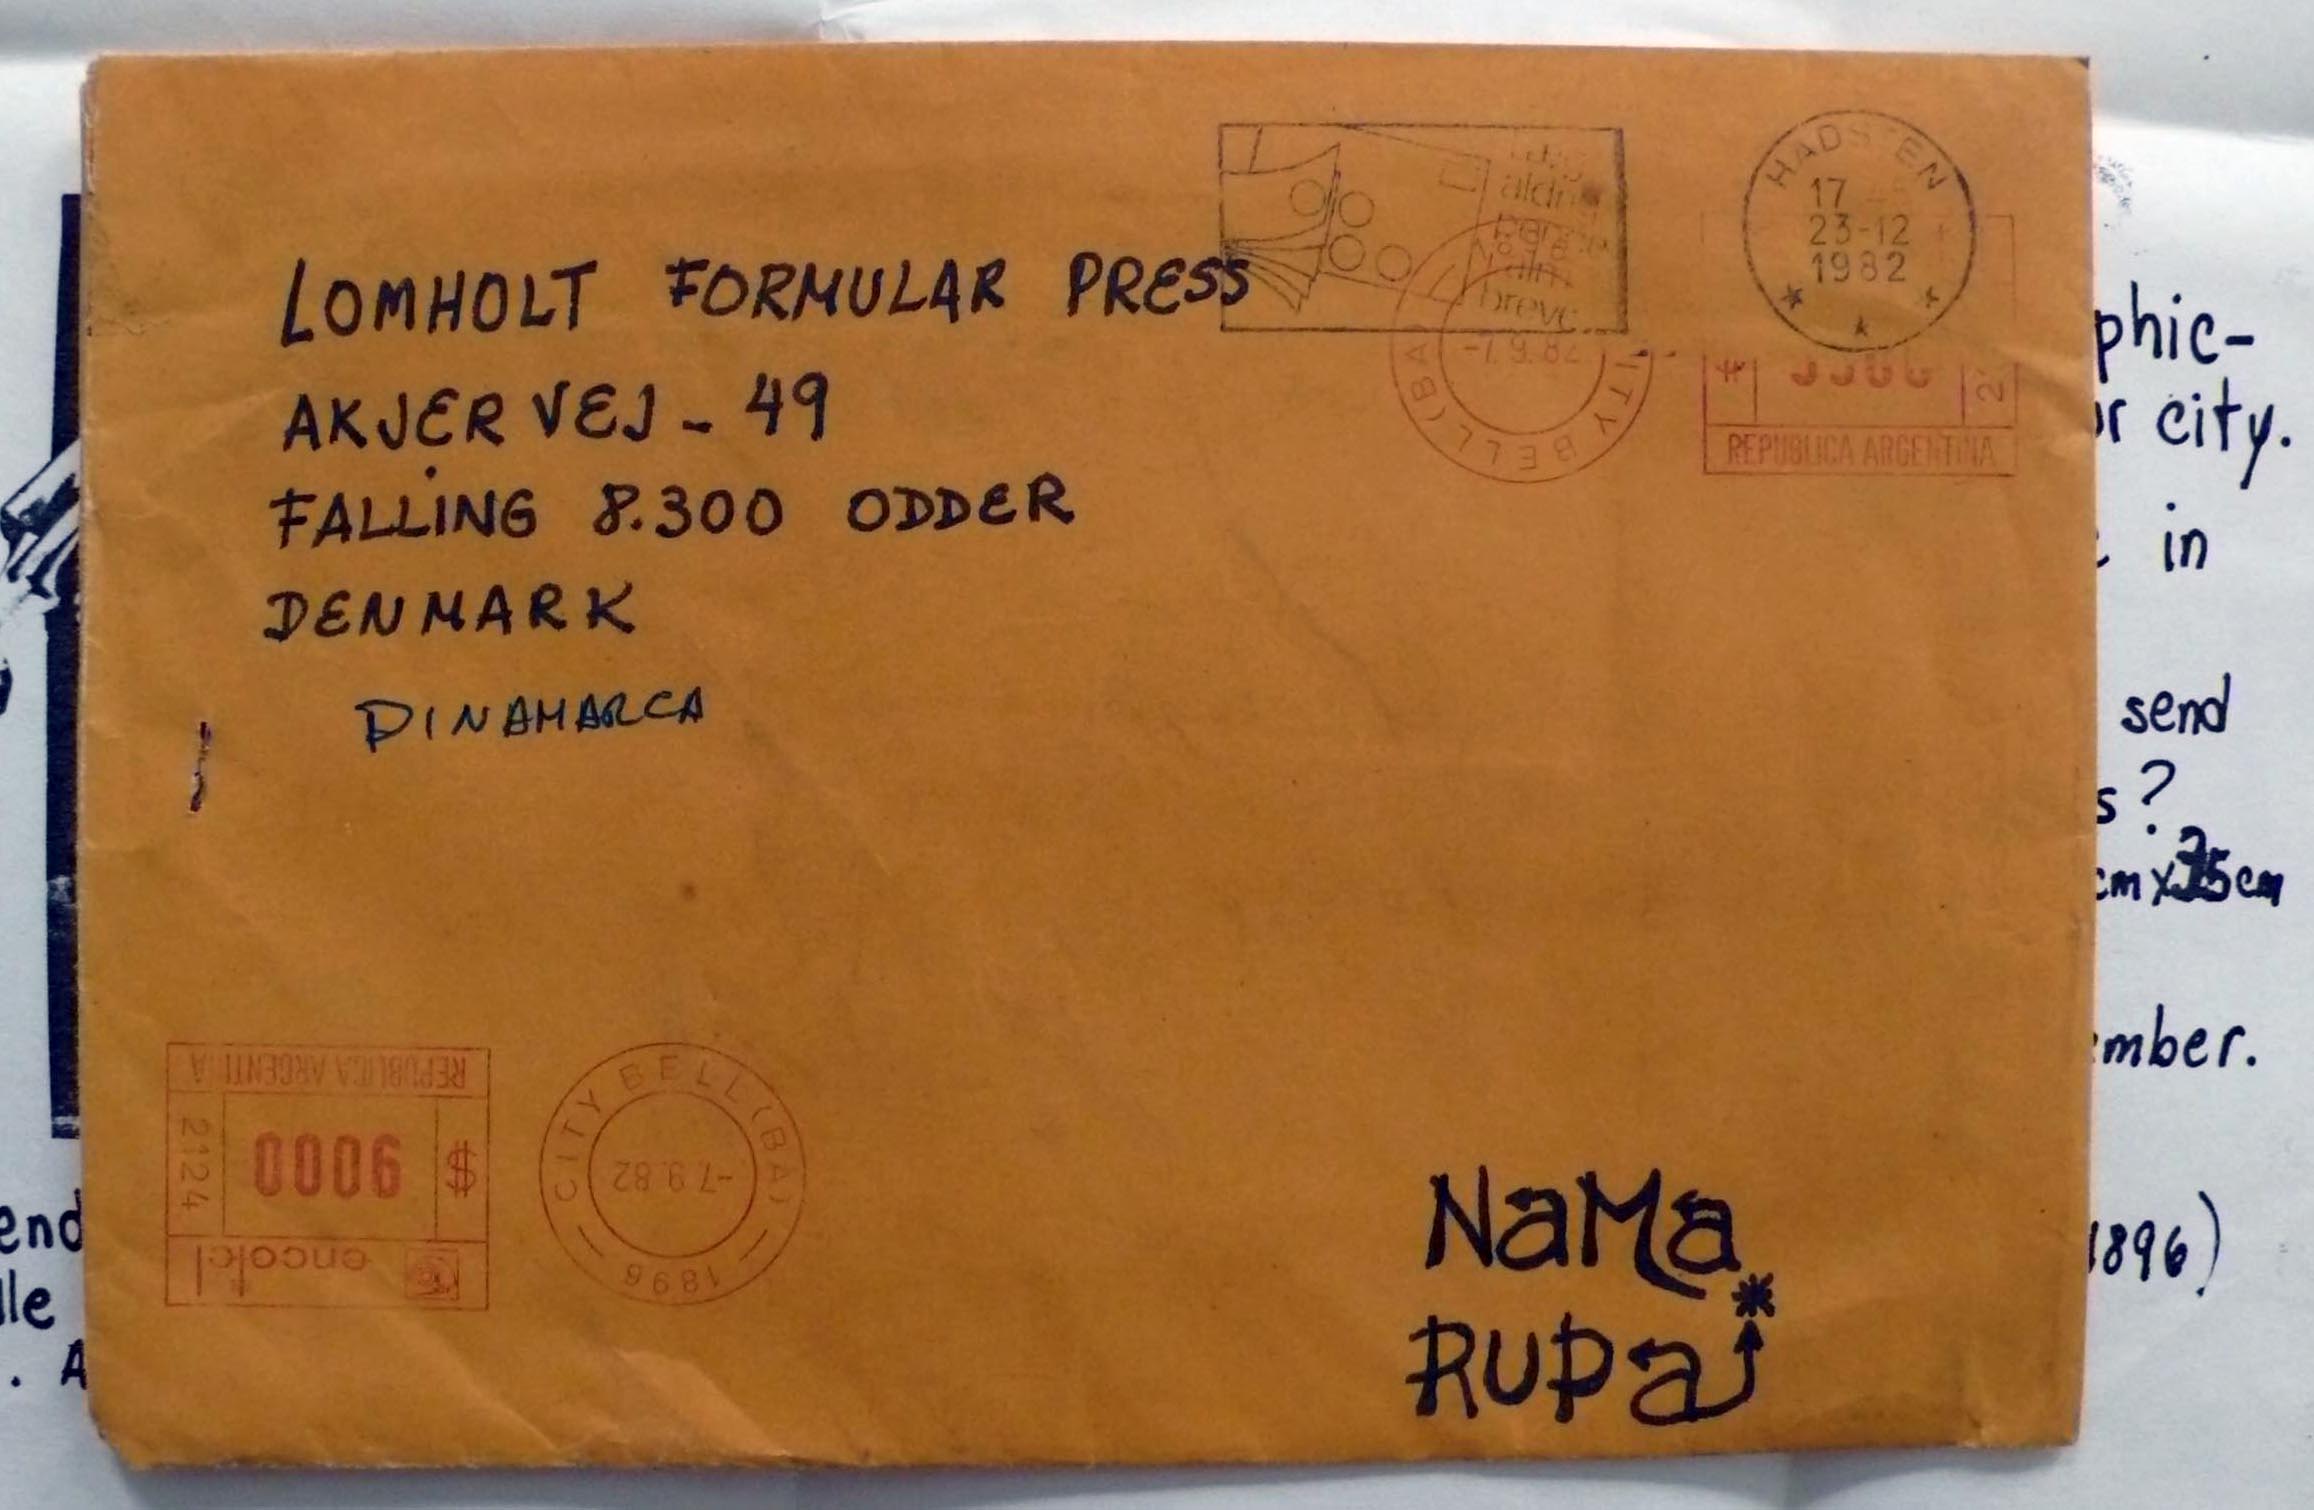 LOMHOLT FORMULAR PRESS
AKJER VEJ - 49
FALLING 8.300 ODDER
DENMARK
DINAMARCA
aldrig
penge
alm.
breve
HADSTEN
17
23-12
1982
CITY BELL (BA)
-7.9.82
$
REPUBLICA ARGENTINA
REPUBLICA ARGENTINA
2124
9000
$
encotel
CITY BELL (BA)
-7.9.82
1896
NaMa
RUPa
phic-
r city.
in
send
s?
cm x 35cm
mber.
end
1896)
lle
. A